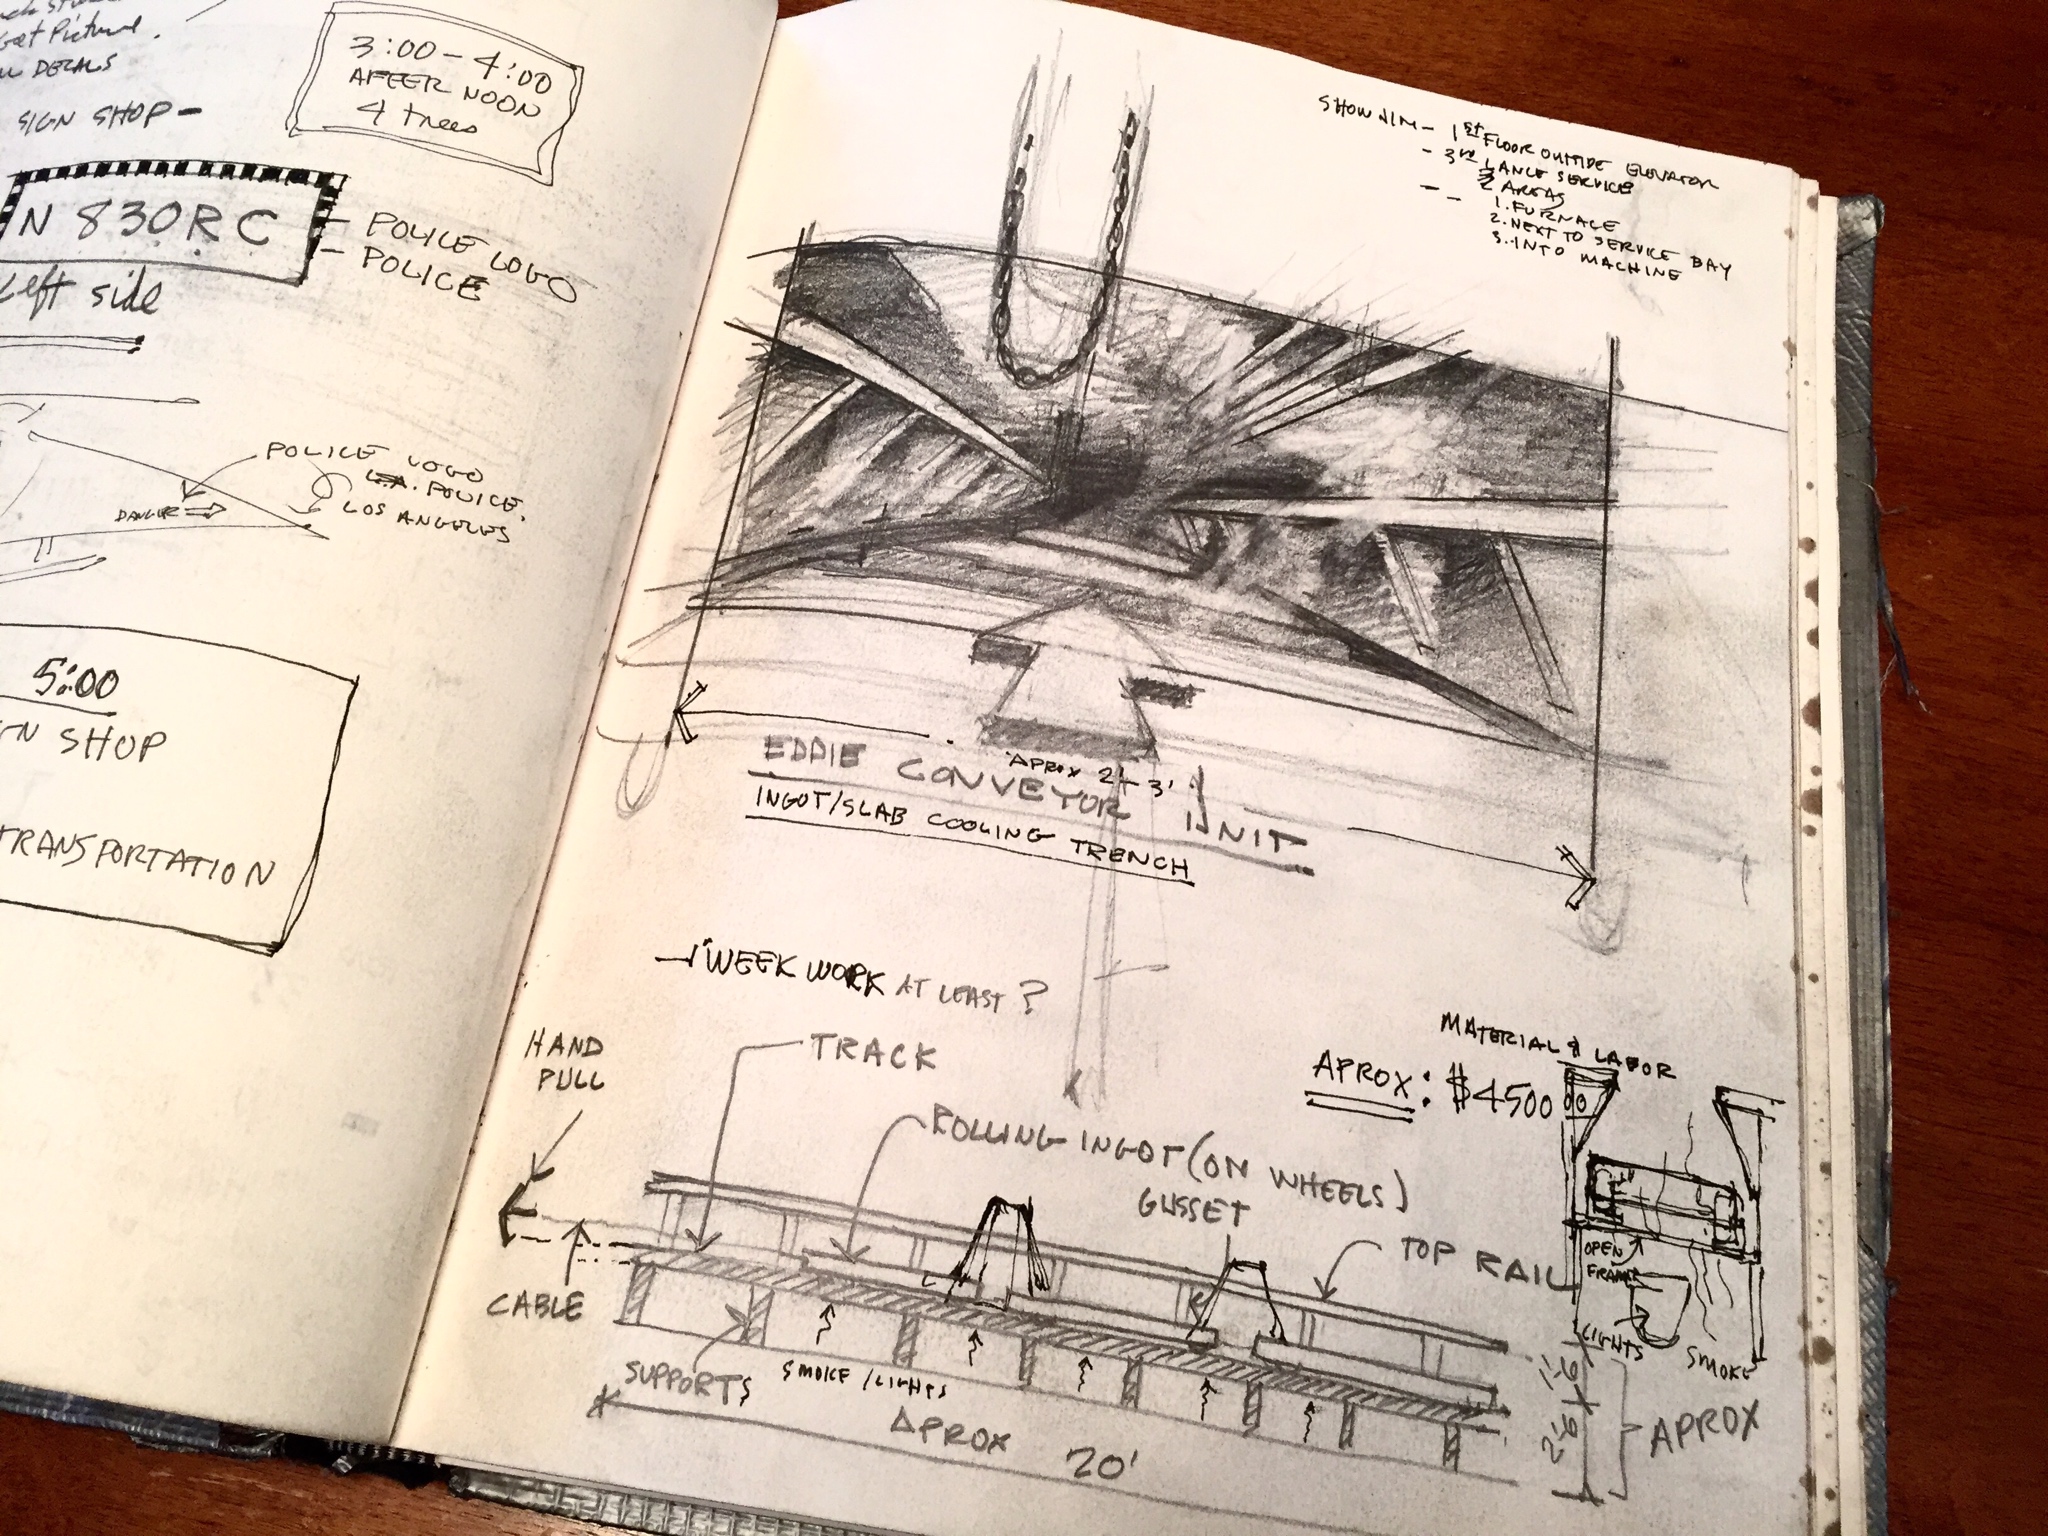 Get Picture.
DECALS
SIGN SHOP -
3:00 - 4:00
AFEER NOON
4 trees
N 830RC
- POLICE LOGO
- POLICE
Left side
POLICE LOGO
L.A. POLICE.
LOS ANGELES
DANGER
5:00
SHOP
TRANSPORTATION
SHOW JIM - 1ST FLOOR OUTSIDE ELEVATOR
- 3RD LANCE SERVICE
- 2 AREAS
- 1. FURNACE
2. NEXT TO SERVICE BAY
3. INTO MACHINE
APROX 2'- 3'
EDDIE CONVEYOR UNIT
INGOT/SLAB COOLING TRENCH
WEEK WORK AT LEAST?
HAND
PULL
TRACK
MATERIAL & LABOR
APROX: $4500 00
ROLLING INGOT (ON WHEELS)
GUSSET
TOP RAIL
OPEN
FRAME
CABLE
LIGHTS
SMOKE
SUPPORTS
SMOKE/LIGHTS
APROX 20'
1'-6"
2'-6"
APROX